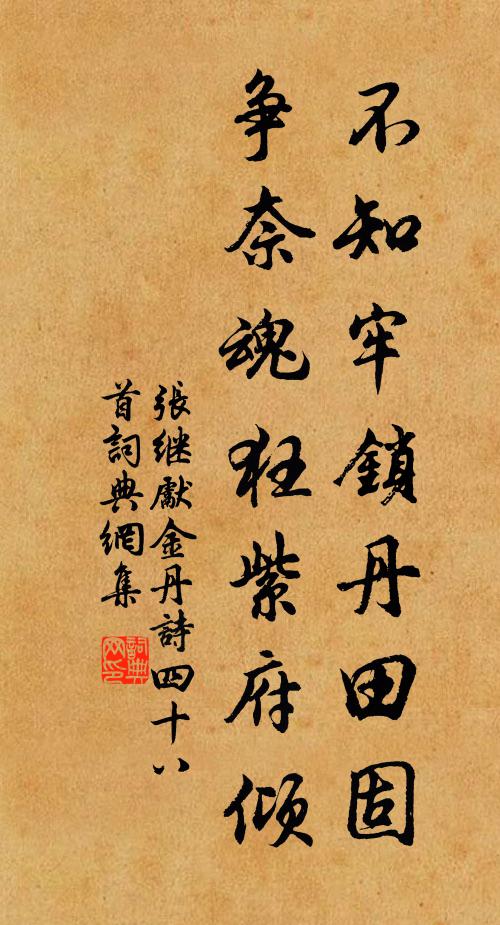 不知牢鎖丹田固
争奈魂狂紫府傾
張継獻金丹詩四十八
首詞典網集
詞典
网印